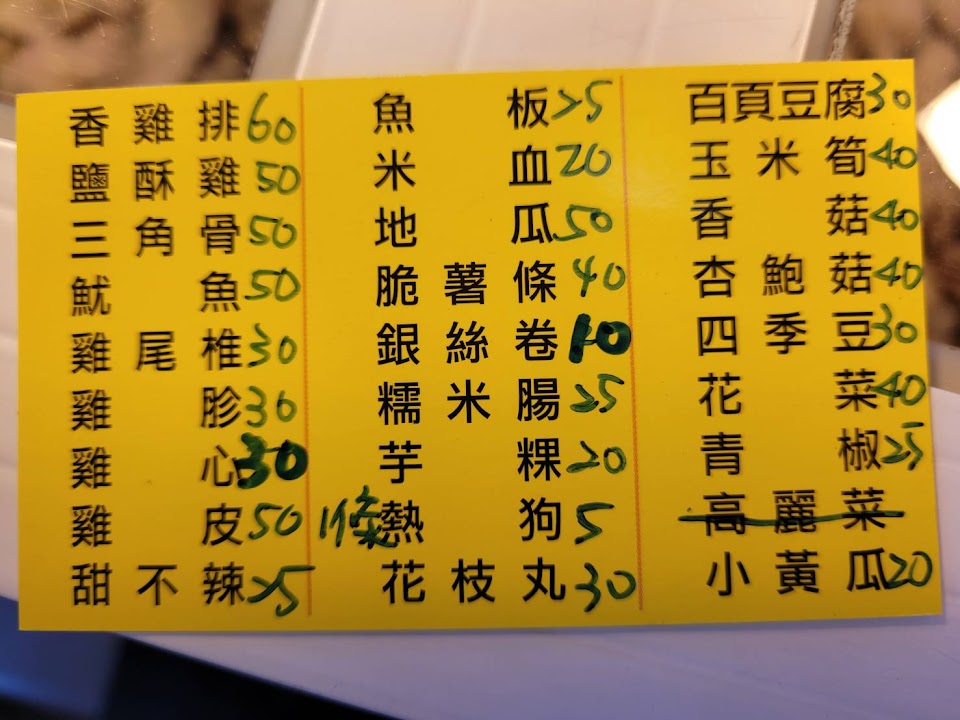 香雞排60
鹽酥雞50
三角骨50
魷魚50
雞尾椎30
雞胗30
雞心30
雞皮50
甜不辣25
魚板25
米血20
地瓜50
脆薯條40
銀絲卷10
糯米腸25
芋粿20
1條熱狗5
花枝丸30
百頁豆腐30
玉米筍40
香菇40
杏鮑菇40
四季豆30
花菜40
青椒25
高麗菜
小黃瓜20